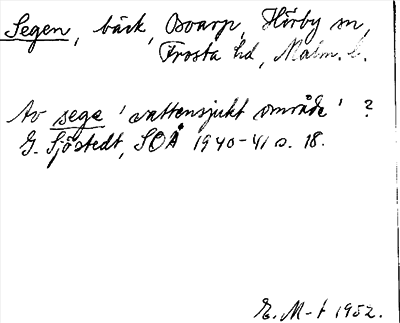 Segen, bäck, Osvarp, Hörby sn,
Frosta hd, Malm. l.
Av sega 'vattensjukt område' ?
G. Sjöstedt, SOÅ 1940-41 s. 18.
E. M-t 1952.